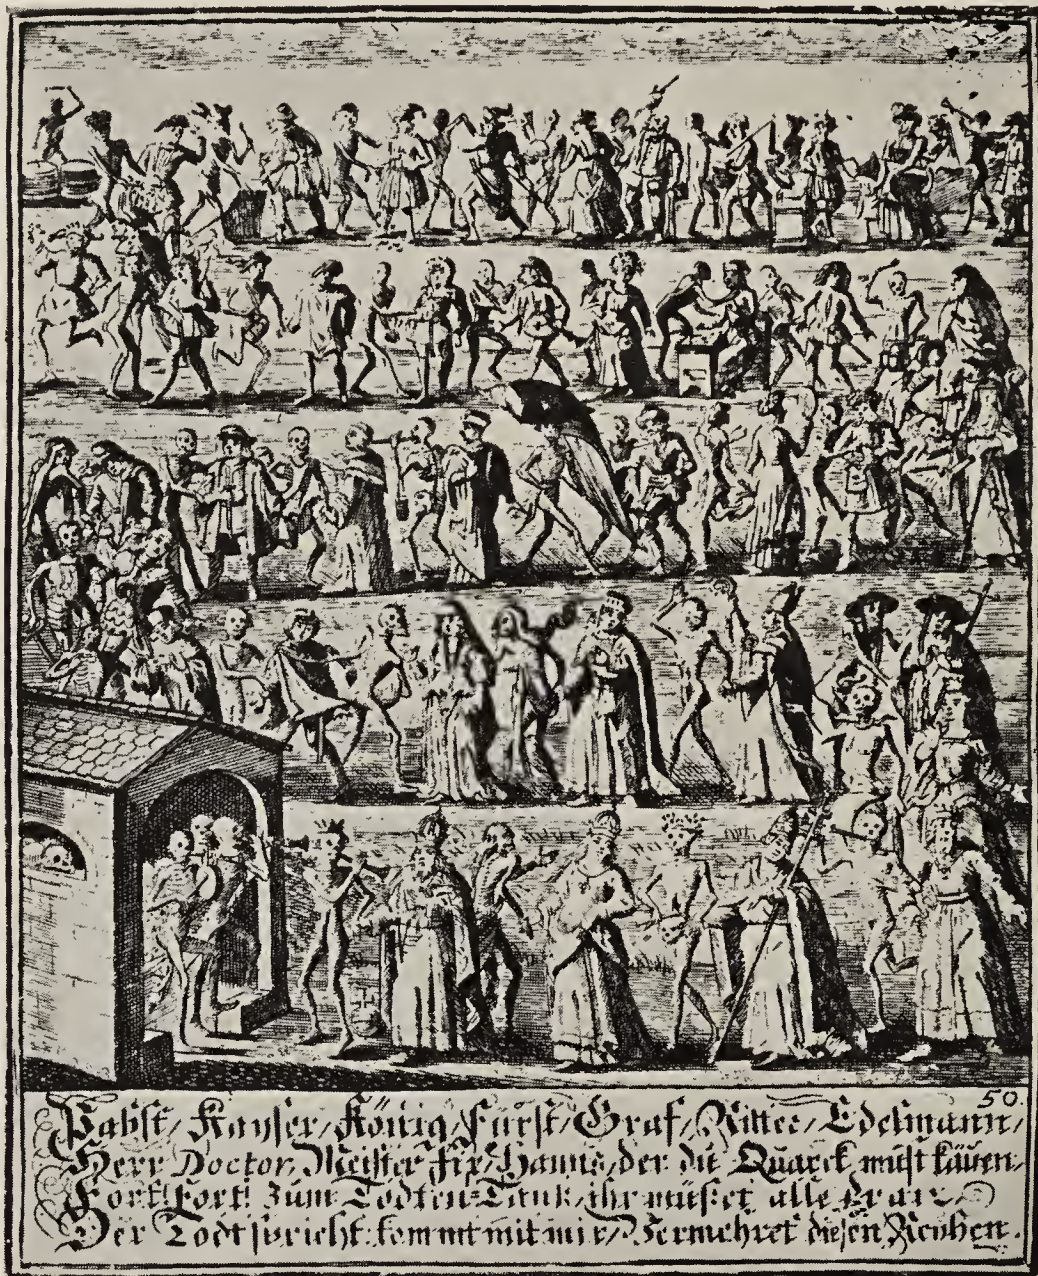 50.
Pabst/ Kayser/ König/ Fürst/ Graf/ Ritter/ Edelmann/
Herr Doctor, Meister Fix/ Hanns, der du Quarck must käuen,
Fort! Fort! zum Todten-Tantz/ ihr müsset alle dran/
Der Todt spricht: kommt mit mir/ Vermehret diesen Reyhen.